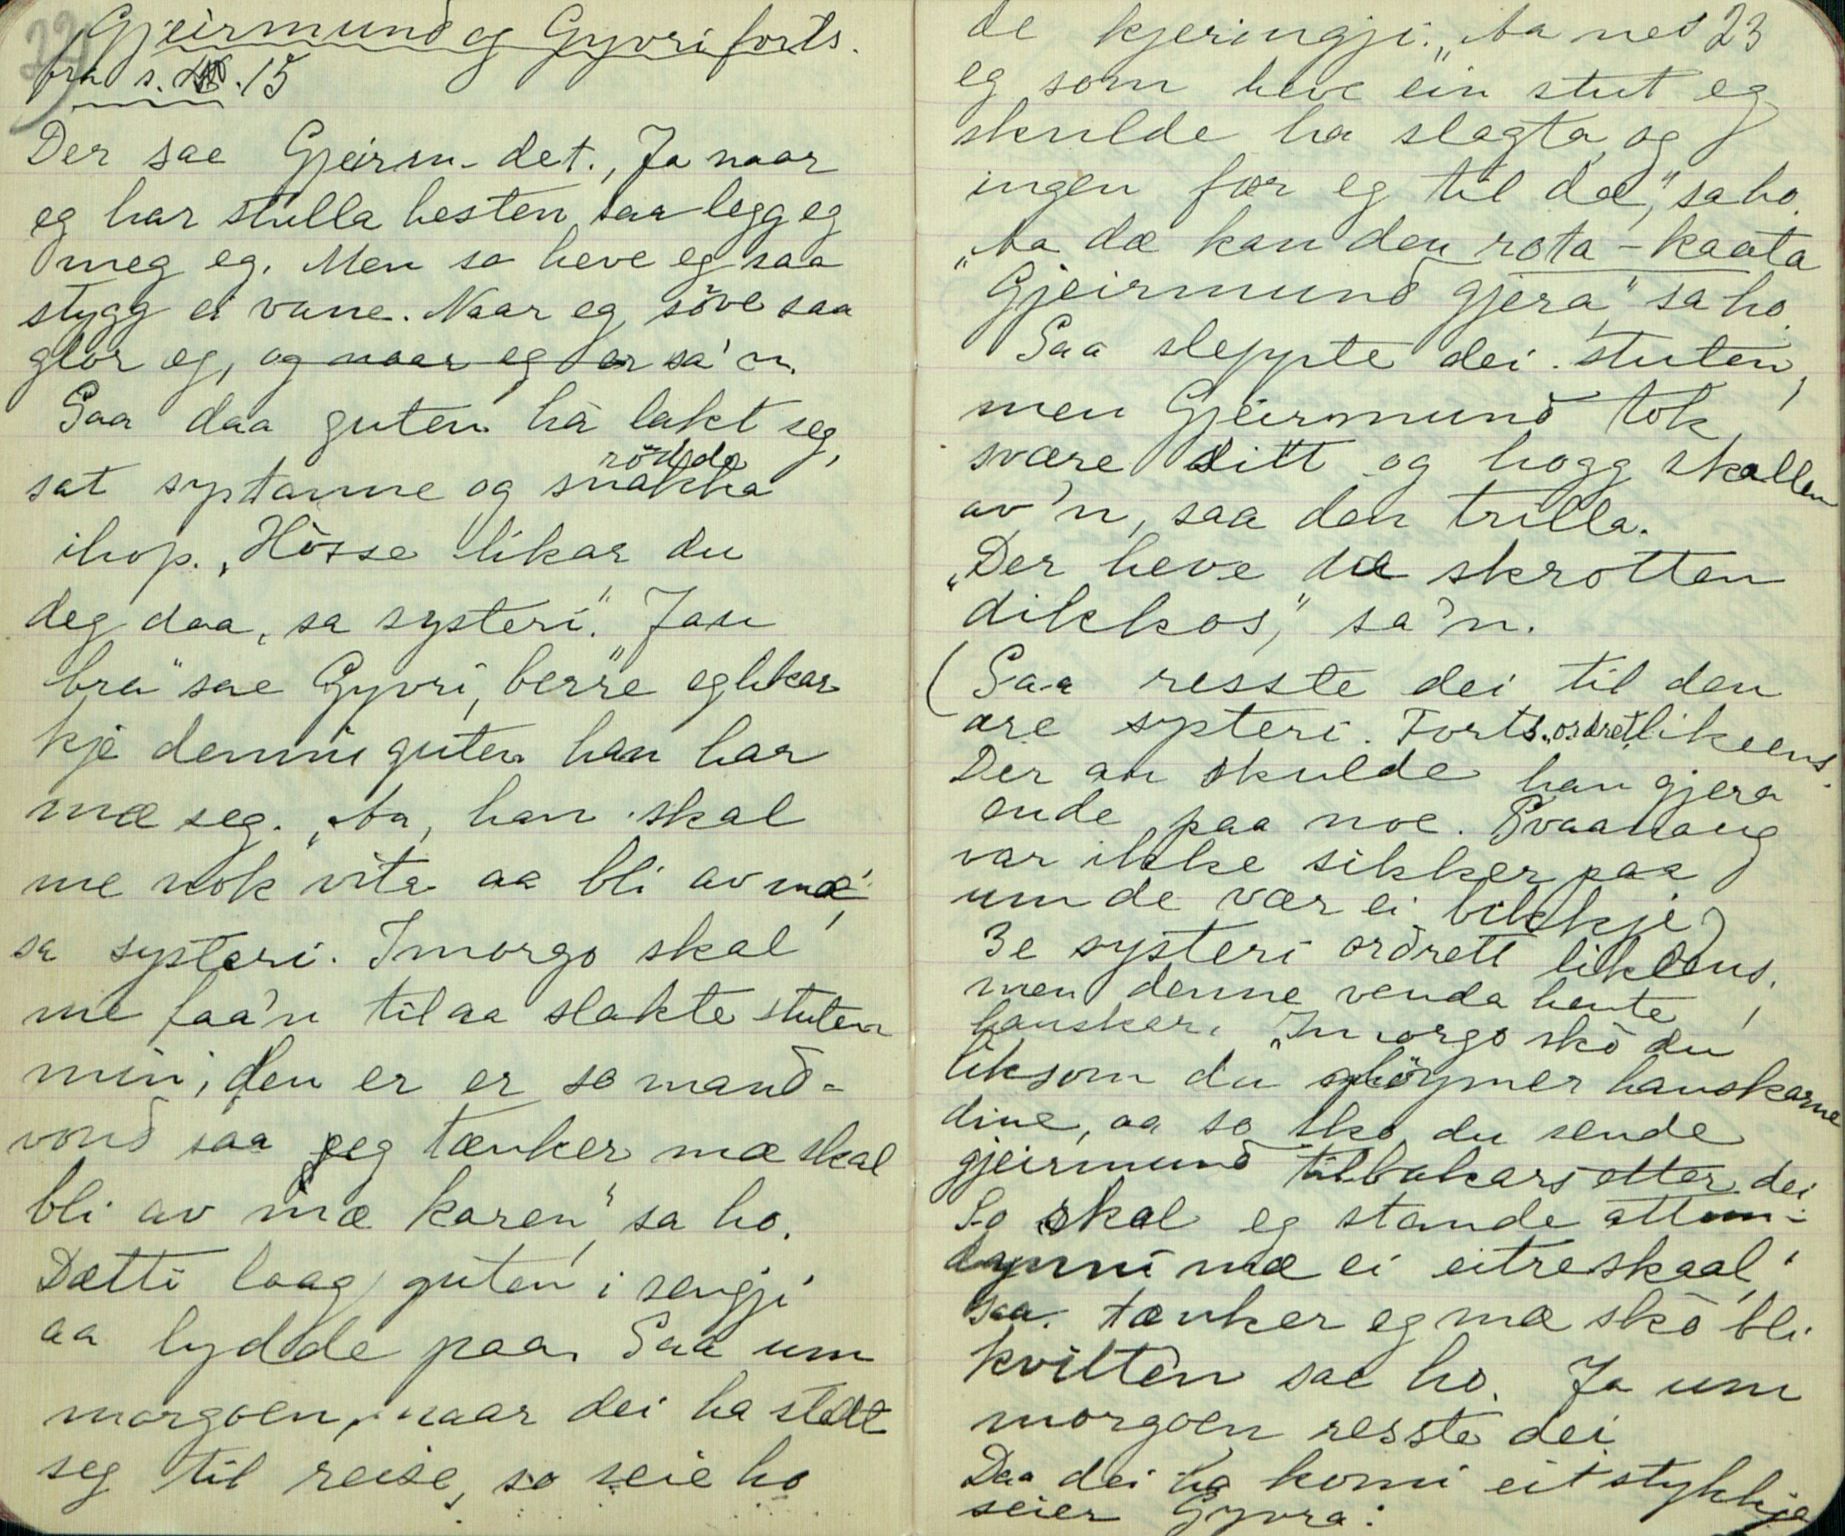 22
Gjeirmund og Gyvri forts.
fra s. 15
Der sae Gjeirm- det. „Ja naar
eg har stulla hesten saa legg eg
meg eg. Men so heve eg saa
stygg ei vane. Naar eg söve saa
glor eg, og naar eg er sa'n.
Saa daa guten hà lakt seg,
rödda
sat systanne og snakka
ihop. „Hòsse likar du
deg daa, sa systeri". "Jau
bra" sae Gyvri, "berre eg likar
kje denni guten han har
mæ seg. „Aa, han skal
me nok vita aa bli av mæ",
sa systeri. Imorgo skal
me faa'n til aa slakte stuten
min, den er er so mand-
vond saa jeg tænker mæ skal
bli av mæ karen", sa ho.
Dætti laag guten i sengji
aa lydde paa. Saa um
morgoen, naar dei ha stellt
seg til reise, so seie ho
de kjeringji: „Aa nei 23
eg som heve ein stut eg
skulde ha slagta og
ingen fær eg til dæ," sa ho.
„Aa dæ kan den rota-kaata
Gjeirmund gjera" sa ho.
Saa sleppte dei stuten,
men Gjeirmund tok
svære sitt og hogg skallen
av'n, saa den trilla.
„Der heve dæ skrotten
dikkos," sa'n.
(Saa resste dei til den
are systeri. Forts. „ordrett" likeens.
Der an skulde han gjera
ende paa noe. Svaanaug
var ikke sikker paa
um de vær ei bikkje)
3e systeri ordrett likeens,
men denne venda hente
hansker. „Imorgo skò du
liksom du glöymer hanskarne
dine, aa so sko du sende
gjeirmund tilbakars etter dei
So skal eg stande attum-
dynni mæ ei eitreskaal,
saa tænker eg mæ skò bli
kvitten sae ho. Ja um
morgoen resste dei
Daa dei ha komi eit stykkje
seier Gyvra: